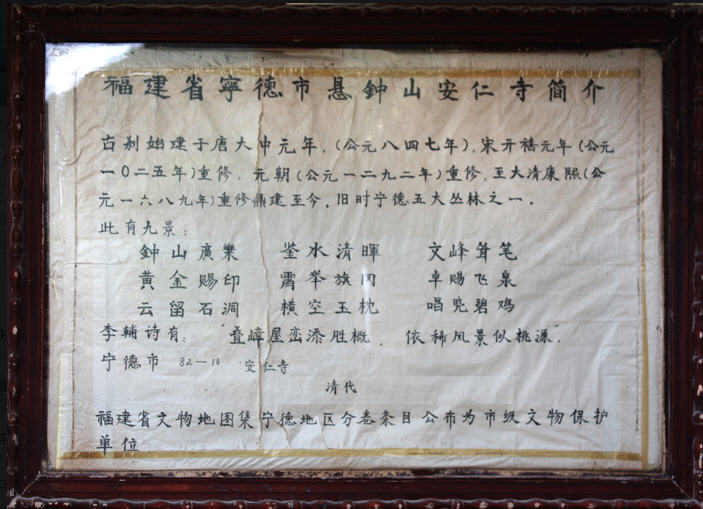 福建省寧德市悬鈡山安仁寺简介
古刹始建于唐大中元年.(公元八四七年),宋开禧元年(公元
一0二五年)重修.元朝(公元一二九二年)重修.至大清康熙(公
元一六八九年)重修鼎建至今,旧时宁德五大丛林之一.
此有九景:
鈡山廣樂 鉴水清暉 文峰耸笔
黄金赐印 霄举旗冈 卓赐飞泉
云留石洞 橫空玉枕 唱晓碧鸡
李輔诗有: 叠嶂屋峦添胜概, 依稀风景似桃源.
宁德市 82—16 安仁寺
清代
福建省文物地图集宁德地区分卷条目公布为市级文物保护
单位